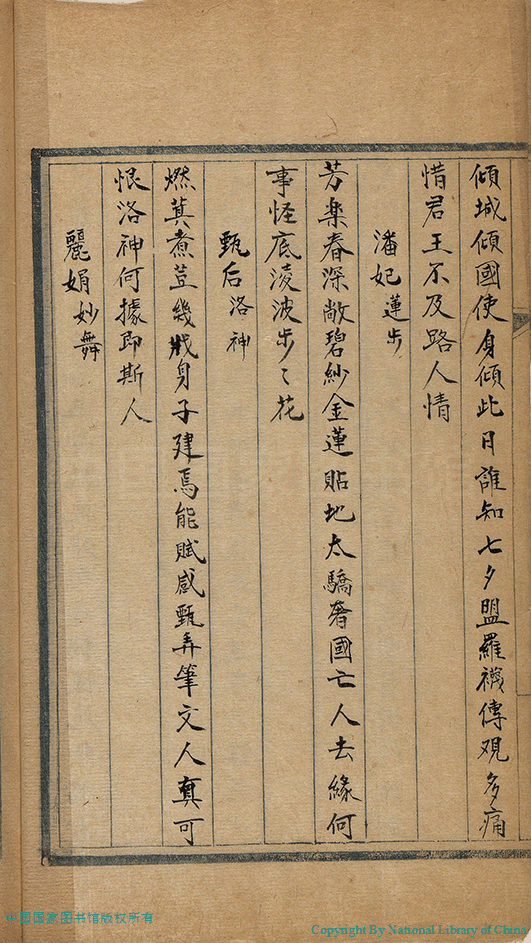 傾城傾國使身傾此日誰知七夕盟羅襪傳观多痛
惜君王不及路人情
潘妃蓮步
芳樂春深敞碧紗金蓮貼地太驕奢國亡人去緣何
事怪底淩波步〻花
甄后洛神
燃萁煮荳幾戕身子建焉能賦感甄弄筆文人真可
恨洛神何據即斯人
麗娟妙舞
中国国家图书馆版权所有
Copyright By National Library of China